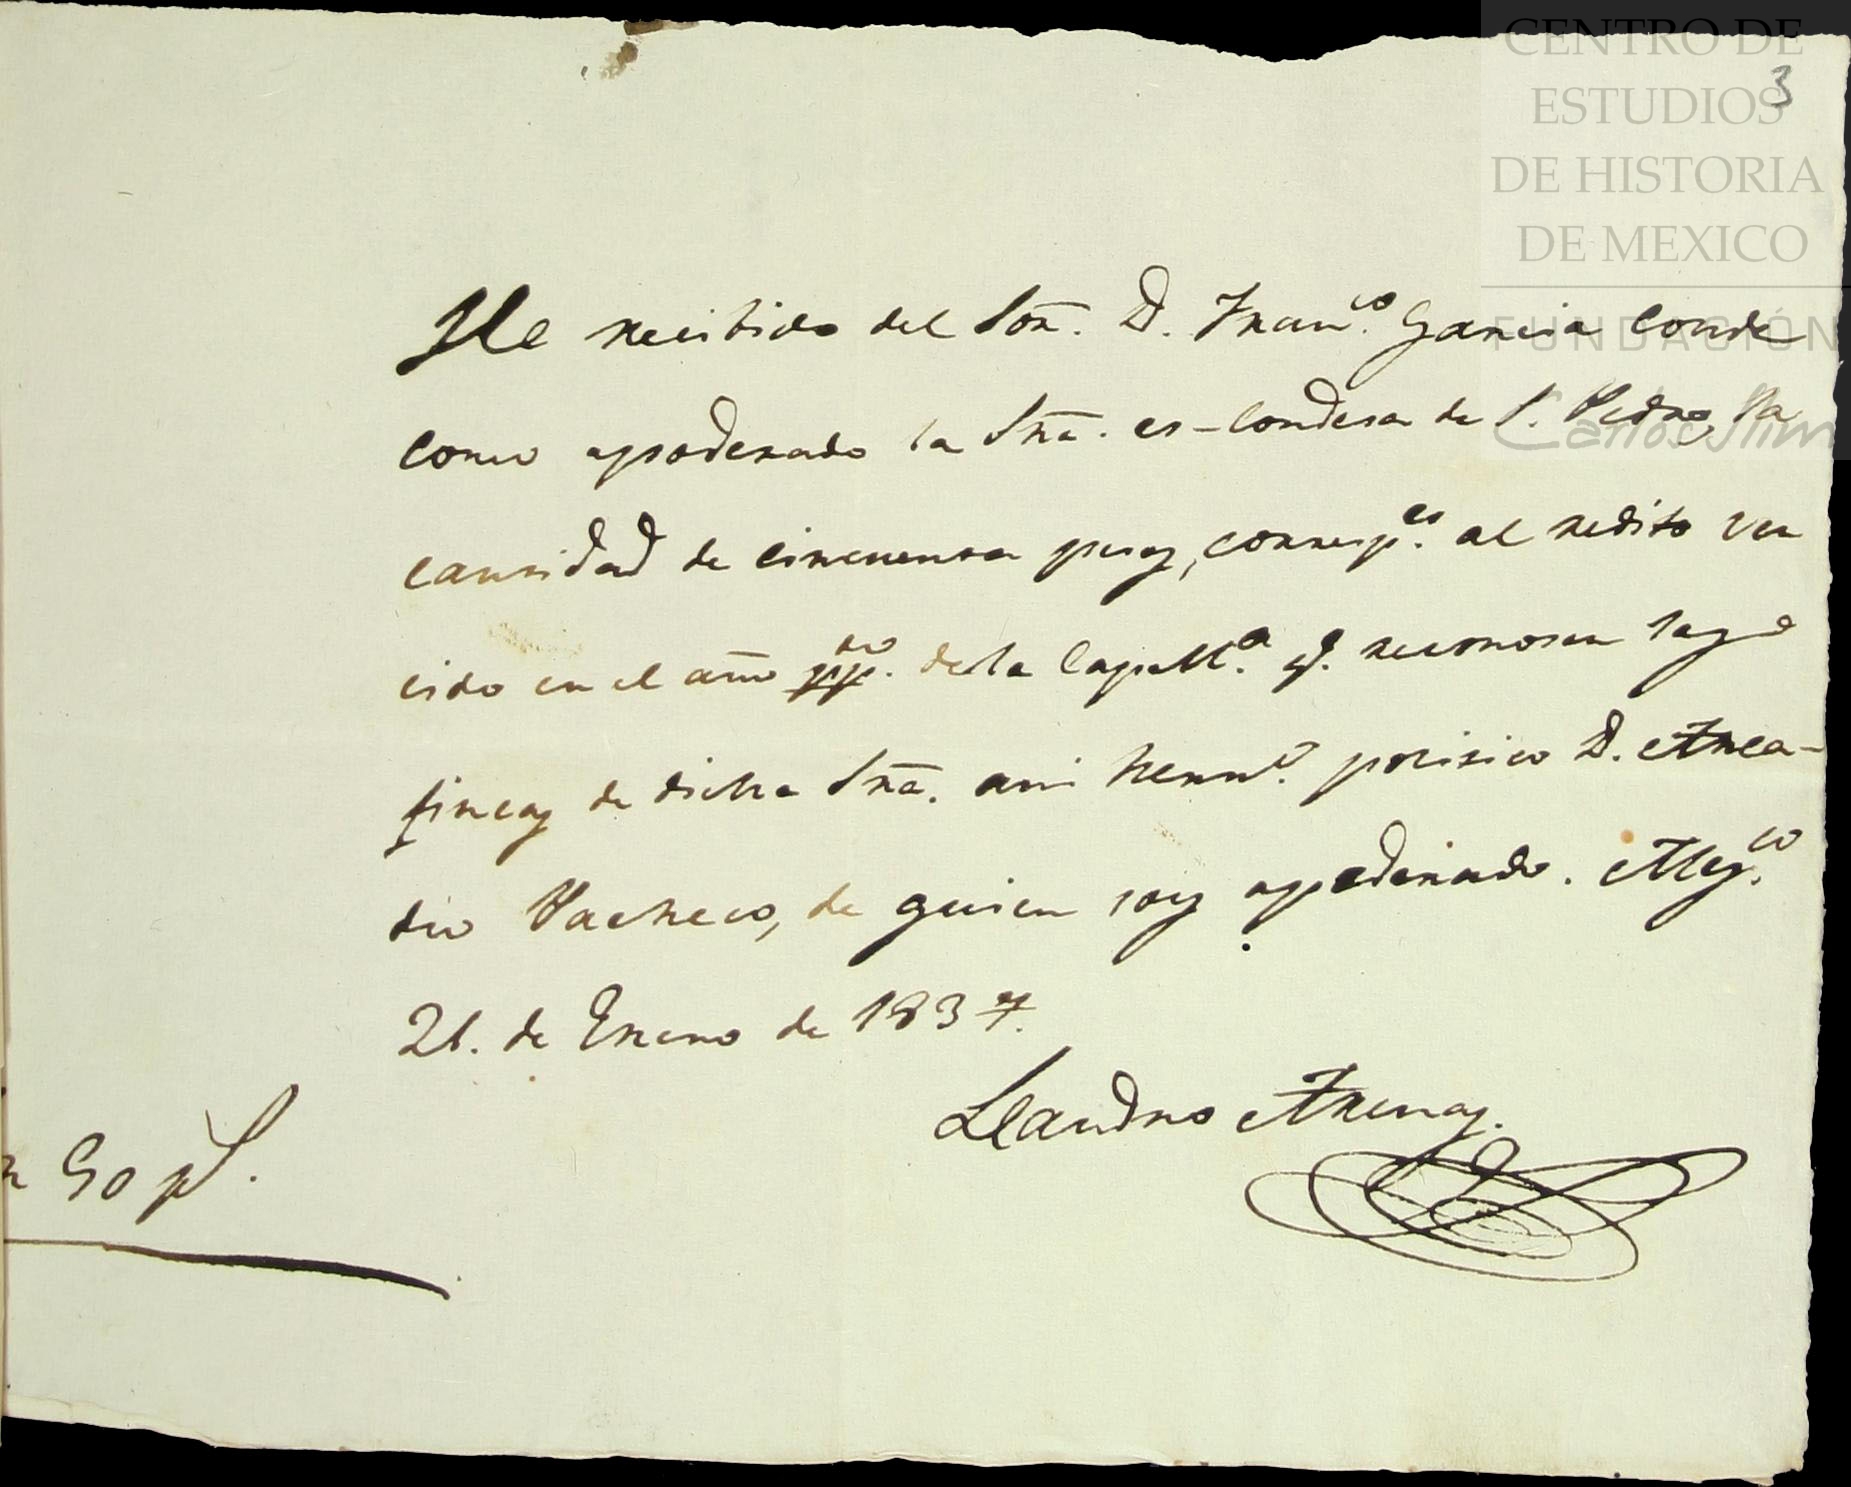 CENTRO DE
ESTUDIOS
DE HISTORIA
DE MEXICO
FUNDACIÓN
Carlos Slim
3
He recibido del Sōr. D. Franco. Garcia Conde
como apoderado la Srā. ex-Condesa de S. Pedro, la
cantidad de cincuenta pesos, corresp.es al redito ven
cido en el año ppdo. de la Capell.a q. reconocen las
fincas de dicha Srā. a mi herm.o politico D. Arca-
dio Pacheco, de quien soy apoderado. Mex.co
21. de Enero de 1837.
Leandro Arenas.
n 50 ps.